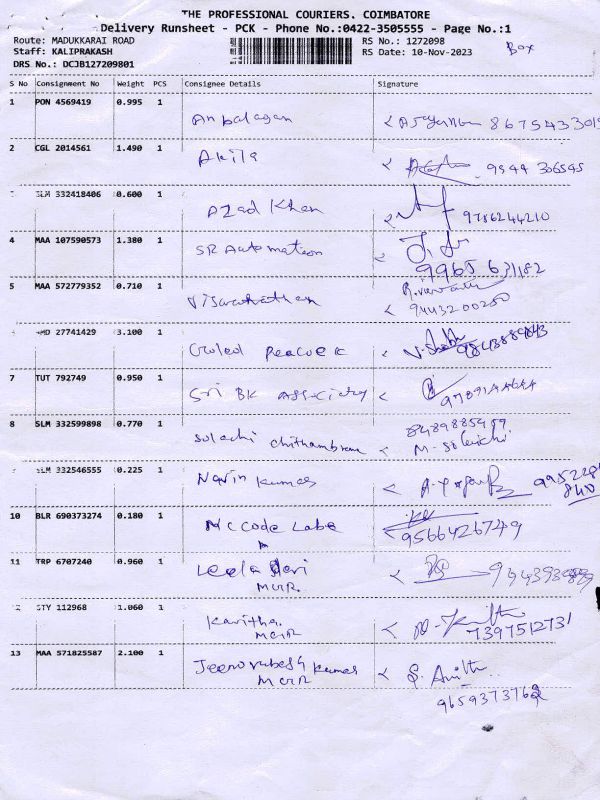 THE PROFESSIONAL COURIERS. COIMBATORE
Delivery Runsheet - PCK - Phone No.:0422-3505555 - Page No.:1
Route: MADUKKARAI ROAD
Staff: KALIPRAKASH
DRS No.: DCJB127209801
RS No.: 1272098
RS Date: 10-Nov-2023
Box
S No Consignment No Weight PCS Consignee Details Signature
1 PON 4569419 0.995 1
Anbalagan 8675433019
2 CGL 2014561 1.490 1
Akila 9944 306545
SLM 332418406 0.600 1
Azad Khan 9786244210
4 MAA 107590573 1.380 1
SR Automation
9965 631182
5 MAA 572779352 0.710 1
9443200250
27741429 3.100 1
Peacock
7 TUT 792749 0.950 1
Sri BK
8 SLM 332599898 0.770 1
M-
332546555 0.225 1
Navin Kumar
840
10 BLR 690373274 0.180 1
Mccode Labe
9566426749
11 TRP 6707240 0.960 1
Leela Devi
MCR
STY 112968 1.060 1
Kavitha
MCR
7397512731
13 MAA 571825587 2.100 1
Kumar
MCR
S. Anitha